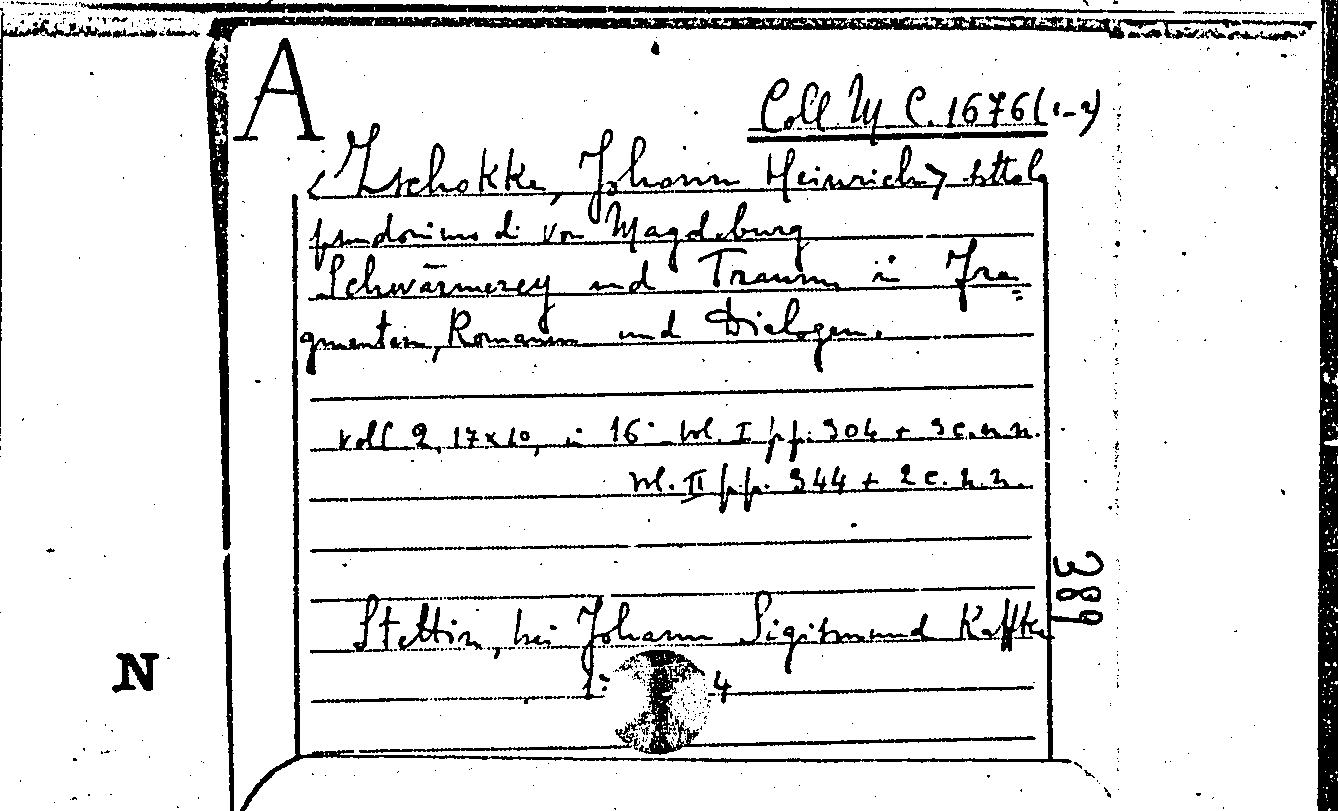 A
Coll. M C. 1676 (1-2)
<Zschokke, Johann Heinrich> sotto lo
pseudonimo di von Magdeburg
Schwärmerey und Traum in Fra=
gmenten, Romanen und Dialogen.
voll 2, 17x10, in 16° vol. I pp. 304 + 3 c.n.n.
vol. II pp. 344 + 2 c.n.n.
389
Stettin, bei Johann Sigismund Kaffke
N
4